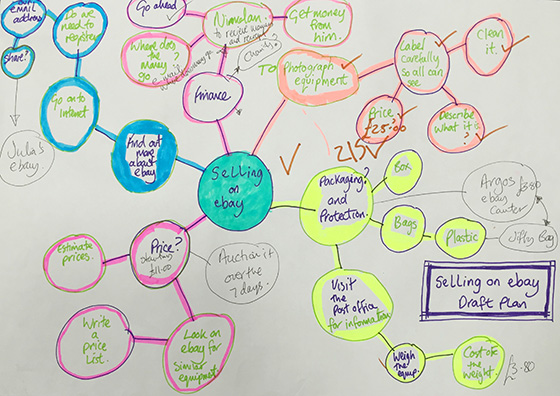 email
address
share?
Julia's
ebay
Do we
need to
register
Go on to
Internet
Find out
more
about
ebay
Go ahead
Nimolan.
to receive money
Get money
from
him.
Where does
the
money
go.
Charity?
Finance
Selling
on
ebay
TO
Photograph
equipment
Label
carefully
so all can
see
Clean
it.
Price
£25.00
Describe
what it is
?
215
Packaging?
and
Protection.
Box
Bags
Plastic
Jiffy Bag
Argos
ebay
£3.80
Visit
the
Post office
for information
Weigh
the
equip.
Cost of
the
weight.
£3.80
Price?
starting
£1.00
Estimate
prices.
Auction it
over the
7 days.
Write
a
price
List.
Look on
ebay for
Similar
equipment
Selling on ebay
Draft Plan